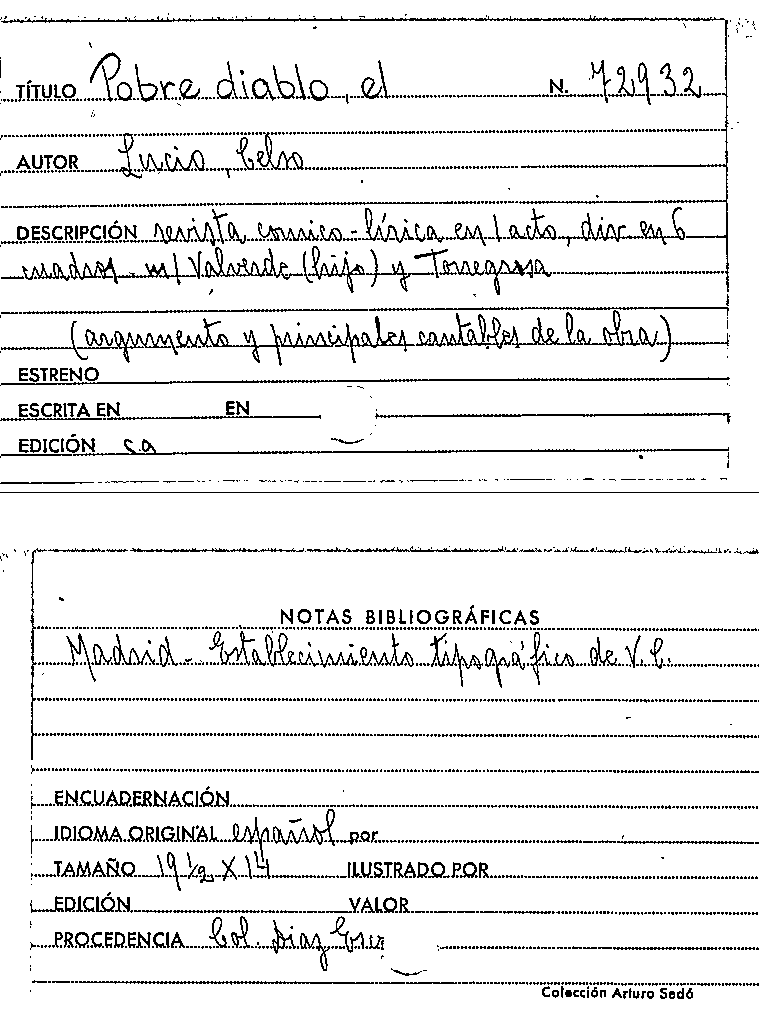 TÍTULO Pobre diablo, el N. 72932
AUTOR Lucio, Celso
DESCRIPCIÓN revista comico-lírica en 1 acto, div. en 6
cuadros - m/ Valverde (hijo) y Torregrosa
(argumento y principales cantables de la obra)
ESTRENO
ESCRITA EN EN
EDICIÓN s.a
NOTAS BIBLIOGRÁFICAS
Madrid - Establecimiento tipográfico de V. C.
ENCUADERNACIÓN
IDIOMA ORIGINAL español por
TAMAÑO 19 1/2 X 14 ILUSTRADO POR
EDICIÓN VALOR
PROCEDENCIA Col. Diaz
Colección Arturo Sedó